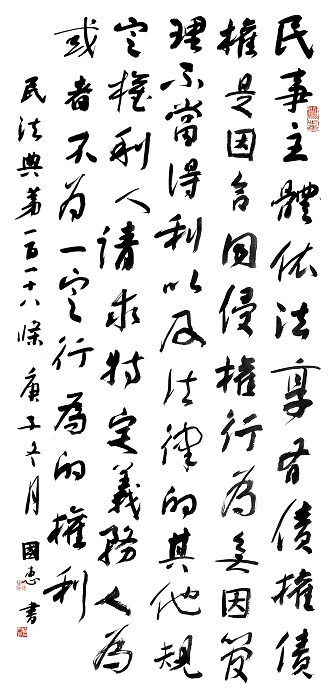 民事主體依法享有債權債
權是因合同侵權行為無因管
理不當得利以及法律的其他規
定權利人請求特定義務人為
或者不為一定行為的權利
民法典第一百一十八條 庚子冬月 國惠書